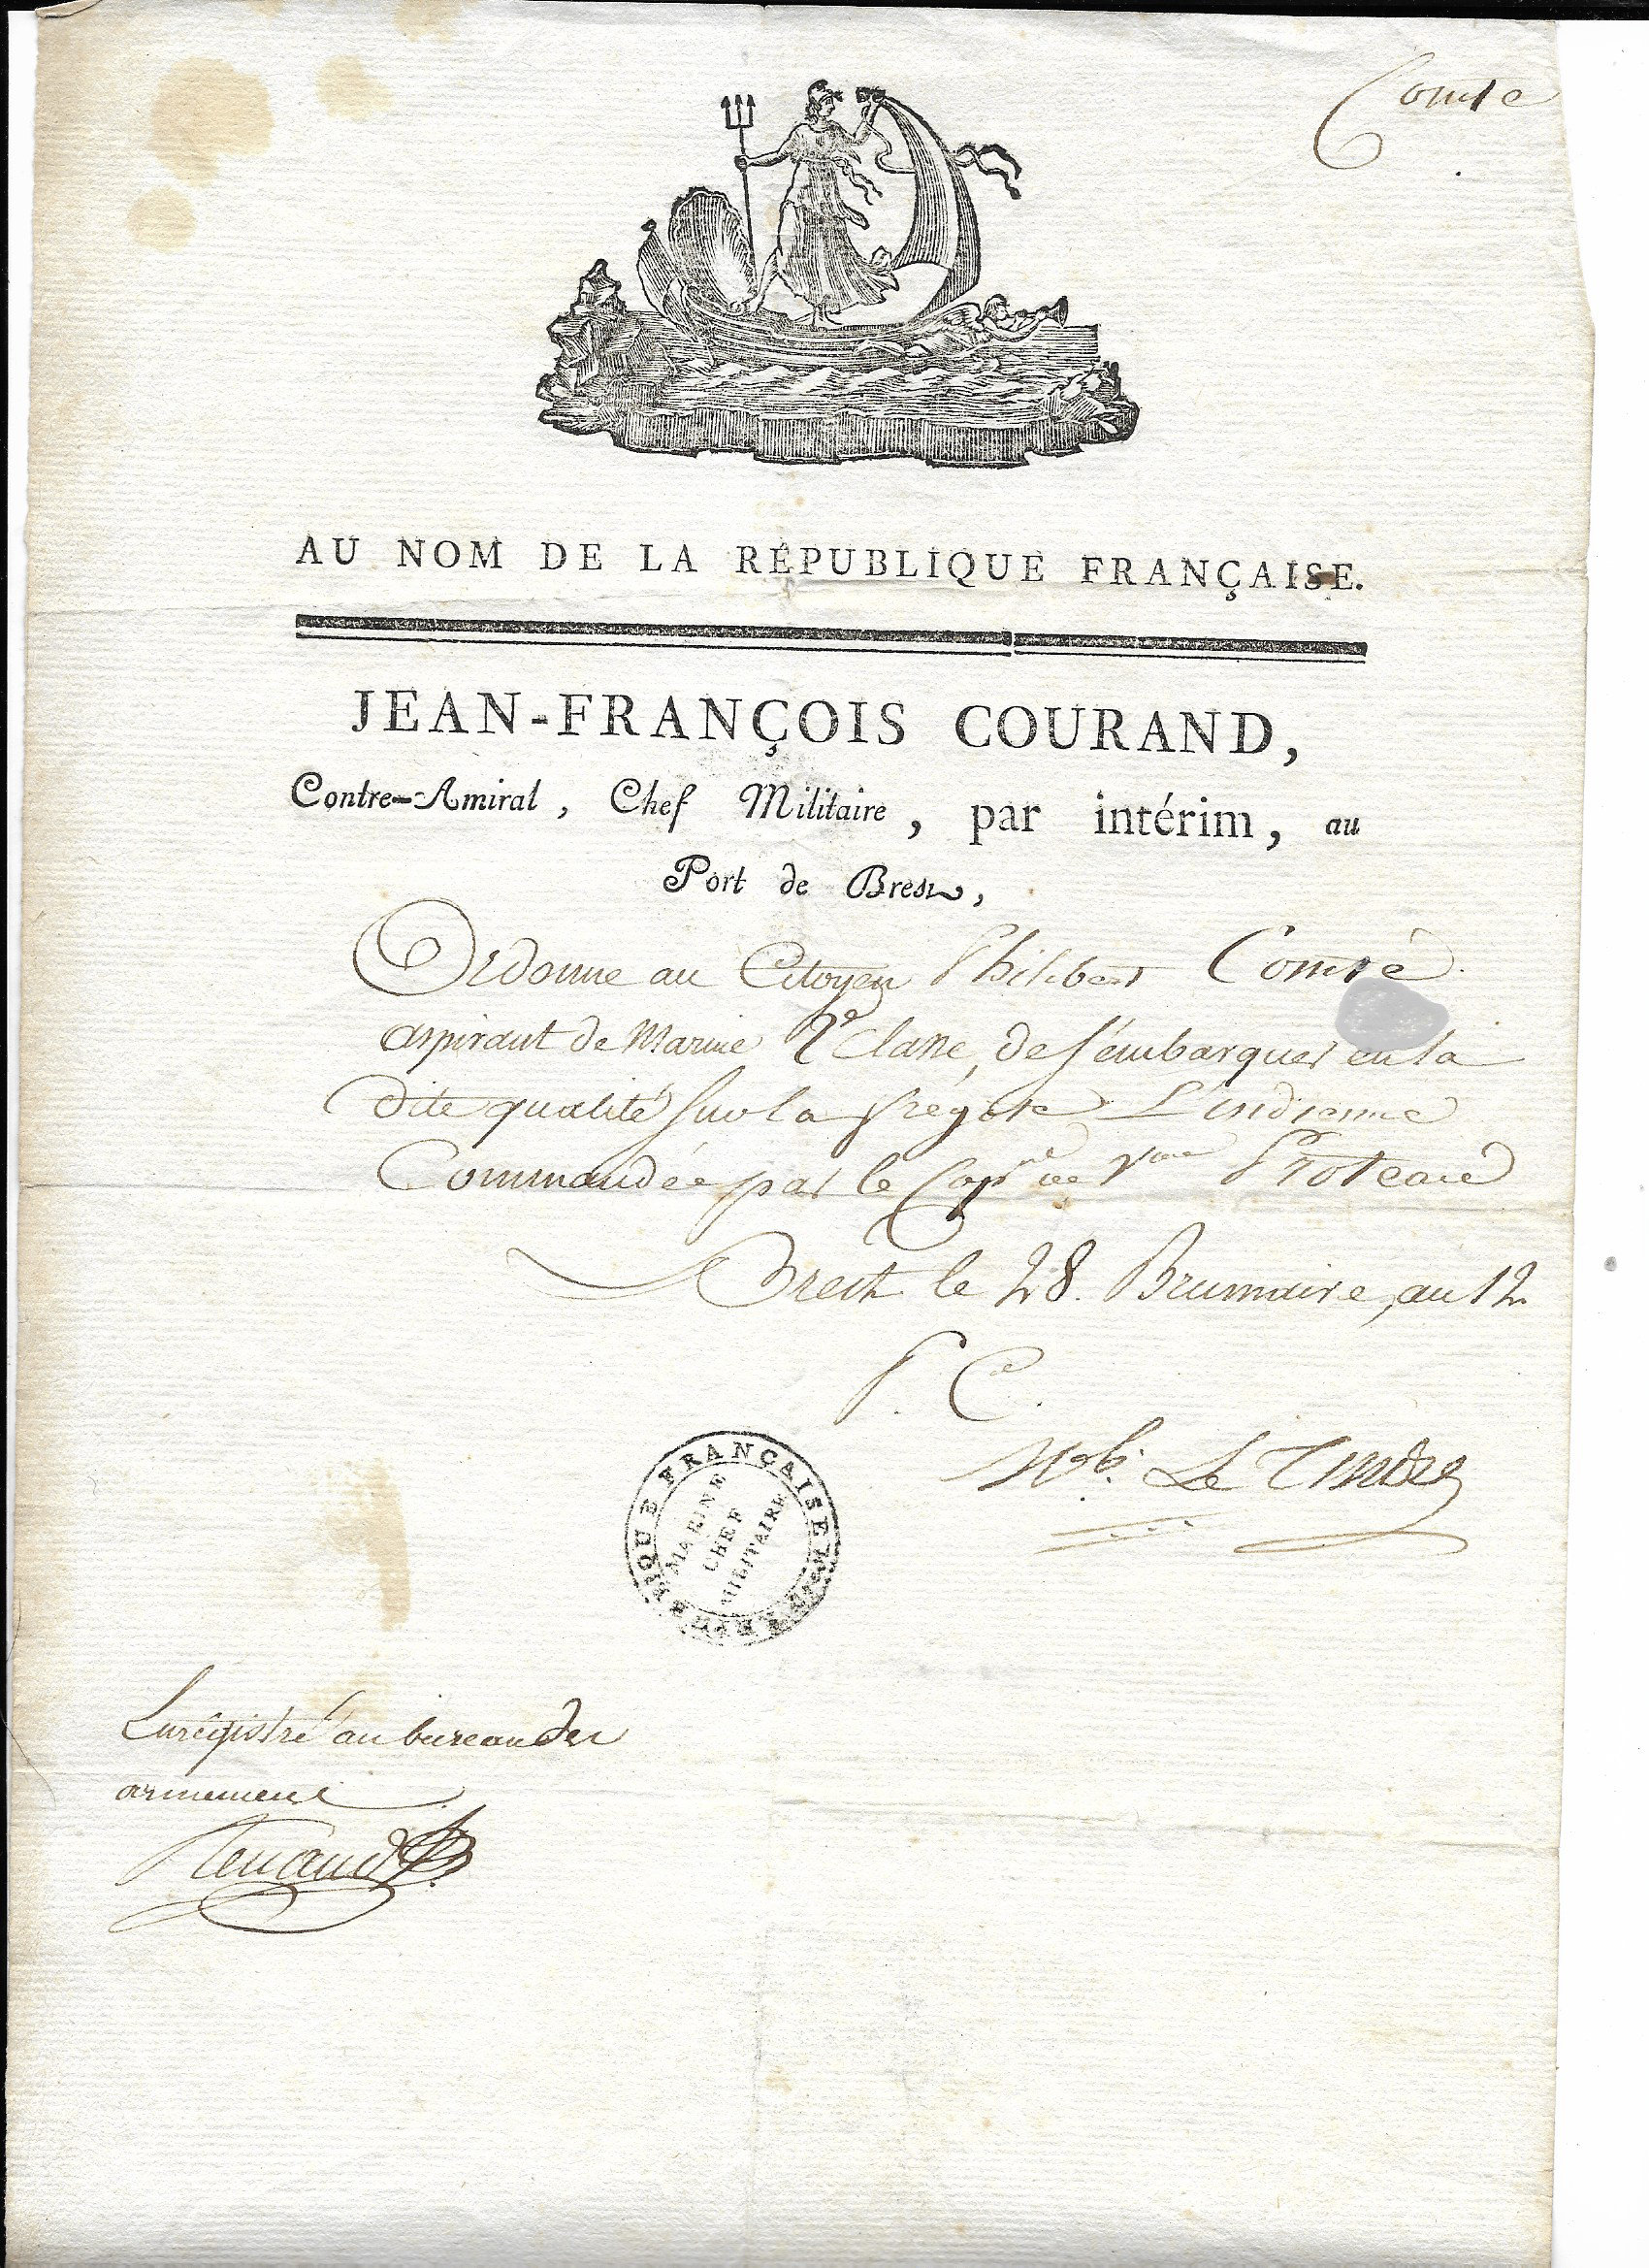 Comte
AU NOM DE LA RÉPUBLIQUE FRANÇAISE.
JEAN-FRANÇOIS COURAND,
Contre-Amiral, Chef Militaire, par intérim, au
Port de Brest,
Ordonne au Citoyen Philibert Comte
aspirant de Marine 2e Classe, de s'embarquer en la
dite qualité sur la frégate L'indienne
Commandée par le Cap.ne de Vau Proteau
Brest le 28. Brumaire, an 12
P. Ce.
Le Tendre
RÉPUBLIQUE FRANÇAISE
MARINE
CHEF
MILITAIRE
Enregistré au bureau des
armement
Renaud